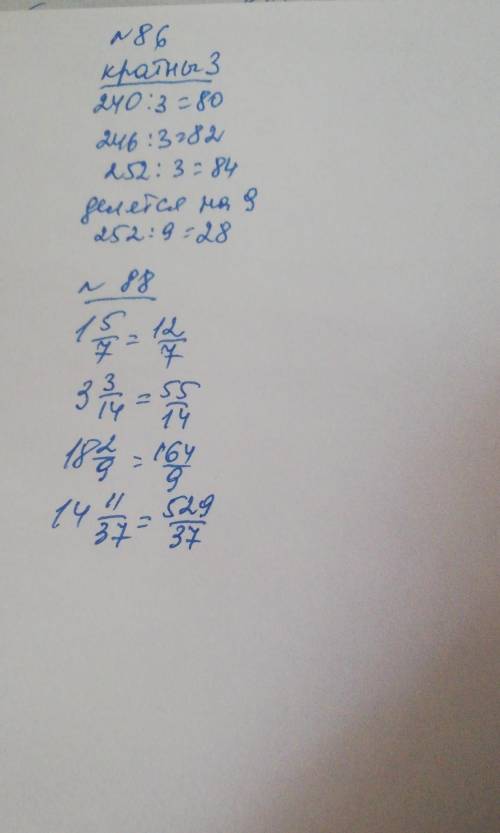 №86
кратны 3
240:3=80
246:3=82
252:3=84
делятся на 9
252:9=28
№ 88
1 5/7 = 12/7
3 3/14 = 55/14
18 2/9 = 164/9
14 11/37 = 529/37